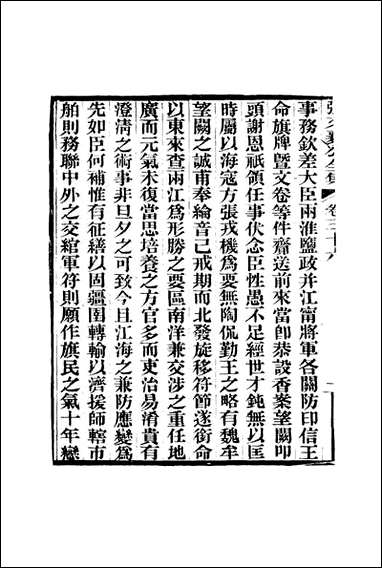 張文襄公全集 卷三十六 一
事務欽差大臣兩淮鹽政并江甯將軍各關防印信王
命旗牌暨文卷等件齎送前來當卽恭設香案望闕叩
頭謝恩祇領任事伏念臣性愚不足經世才鈍無以匡
時屬以海寇方張戎機爲要無陶侃勤王之略有魏牟
望闕之誠甫奉綸音己戒期而北發旋移符節遂銜命
以東來查兩江爲形勝之要區南洋兼交涉之重任地
廣而元氣未復當思培養之方官多而吏治易淆貴有
澄清之術事非旦夕之可致今且江海之兼防應變爲
先如臣何補惟有征繕以固疆圉轉輸以濟援師轄市
舶則務聯中外之交綰軍符則願作旗民之氣十年戀